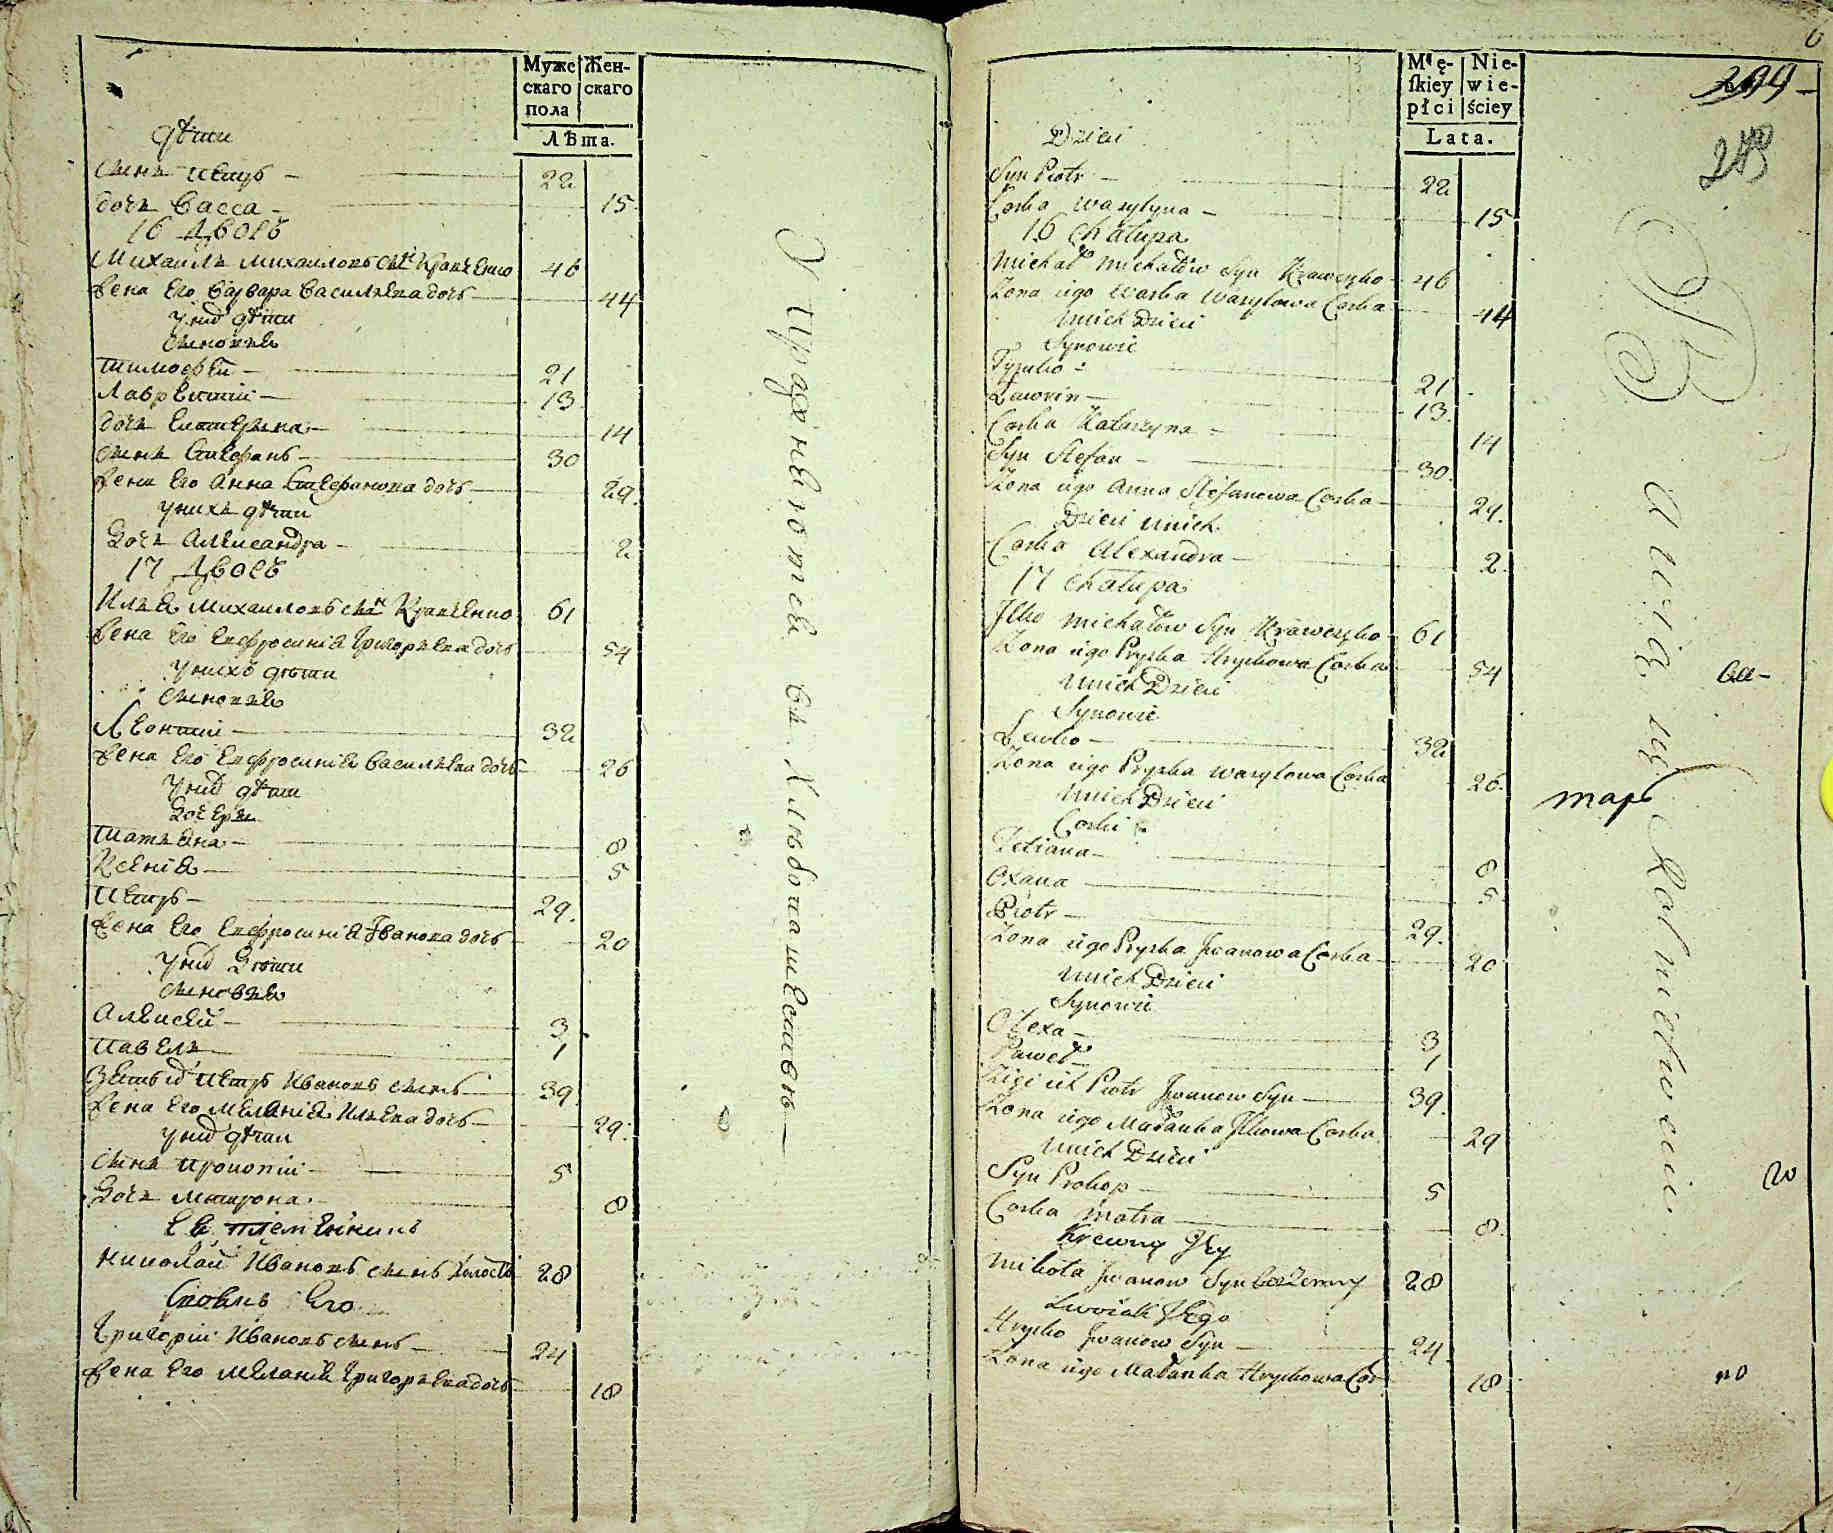 Муже
скаго
пола
Жен-
скаго
Лѣта.
дѣти
сынъ Петръ 22
дочь Васса 15
16 Дворъ
Михаилъ Михаиловъ сынъ Кравченко 46
жена Его Варвара Васильева дочь 44
У нихъ дѣти
сыновья
Тимофей 21
Лаврентій 13
дочь Екатерина 14
сынъ Стефанъ 30
жена Его Анна Стефанова дочь 29.
У нихъ дѣти
Дочь Александра 2
17 Дворъ
Илья Михаиловъ сынъ Кравченко 61
жена Его Евфросинія Григорьева дочь 54
У нихъ дѣти
сыновья
Леонтій 32
жена Его Евфросинія Васильева дочь 26
У нихъ дѣти
Дочери
Татьяна 8
Ксенія 5
Петръ 29.
жена Его Евфросинія Іванова дочь 20
У нихъ Дѣти
сыновья
Алексей 3
Павелъ 1
Зять ихъ Петръ Ивановъ сынъ 39.
жена Его Меланія Ильева дочь 29.
У нихъ дѣти
сынъ Прокопій 5
Дочь Матрона 8
Ихъ племѣнникъ
Николай Ивановъ сынъ холостъ 28
Своякъ Его
Григорій Ивановъ сынъ 24
жена Его Меланія Григорьева дочь 18
Упражняются въ хлебопашествѣ
Męſkiey
płci
Niewieściey
Lata.
6
204
Dzieci
Syn Piotr 22
Corka Wasylyna 15
16 Chałupa
Michał Michałow Syn Krawczęko 46
Zona iego Warka Wasylowa Corka 44
U nich Dzieci
Synowie
Tymko 21
Ławrin 13.
Corka Katarzyna 14
Syn Stefan 30.
Zona iego Anna Stefanowa Corka 29.
Dzieci u nich
Corka Alexandra 2.
17 Chałupa
Ilko Michałow Syn Krawczęko 61
Zona iego Pryska Hryckowa Corka 54
U nich Dzieci
Synowie
Lewko 32
Zona iego Pryska Wasylowa Corka 26.
U nich Dzieci
Corki
Tetiana 8
Oxana 5
Piotr 29.
Zona iego Pryska Iwanowa Corka 20
U nich Dzieci
Synowie
Olexa 3
Paweł 1
Zięć ich Piotr Iwanow Syn 39.
Zona iego Małanka Ilkowa Corka 29
U nich Dzieci
Syn Prokop 5
Corka Motra 8.
Krewny Ich
Mikoła Iwanow Syn bezżenny 28
Swoiak Iego
Hrycko Iwanow Syn 24
Zona iego Małanka Hryckowa Cor 18
Bawią się Rolnictwem